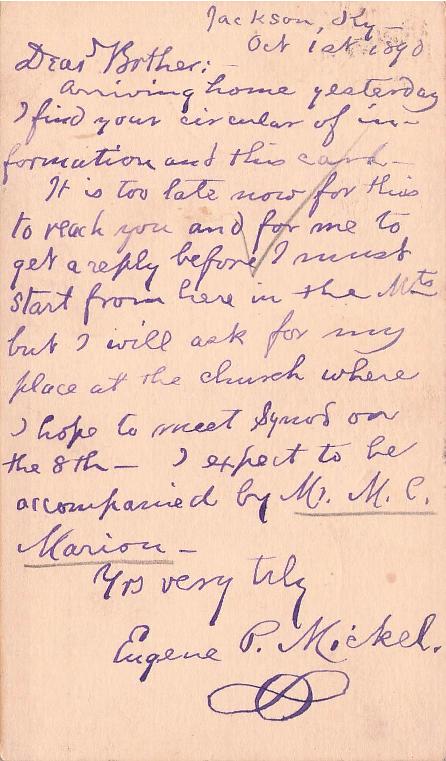 Jackson, Ky—
Oct 1st 1890
Dear Brther:-
Arriving home yesterday
I find your circular of in-
formation and this card—
It is too late now for this
to reach you and for me to
get a reply before I must
start from here in the Mts
but I will ask for my
place at the church where
I hope to meet Synod on
the 8th— I expect to be
accompanied by Mr. M. C.
Marion—
Yrs very trly
Eugene P. Mickel.